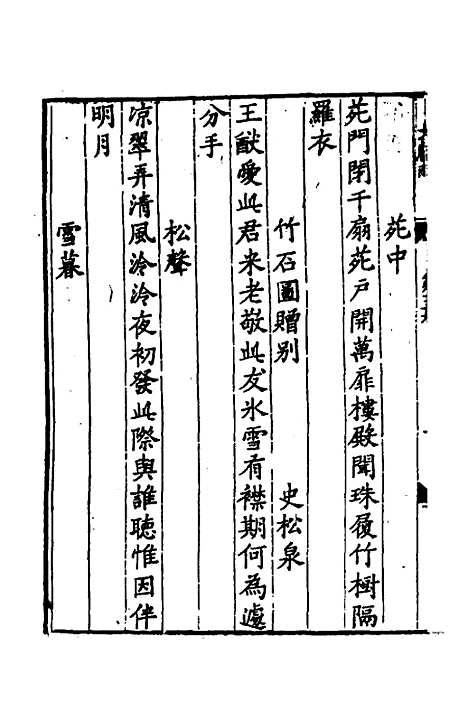 苑中
苑門閉千扇苑戶開萬扉樓殿聞珠履竹樹隔
羅衣
竹石圖贈別 史松泉
王猷愛此君米老敬此友氷雪有襟期何為遽
分手
松聲
凉翠弄清風泠泠夜初發此際與誰聴惟因伴
明月
雪暮